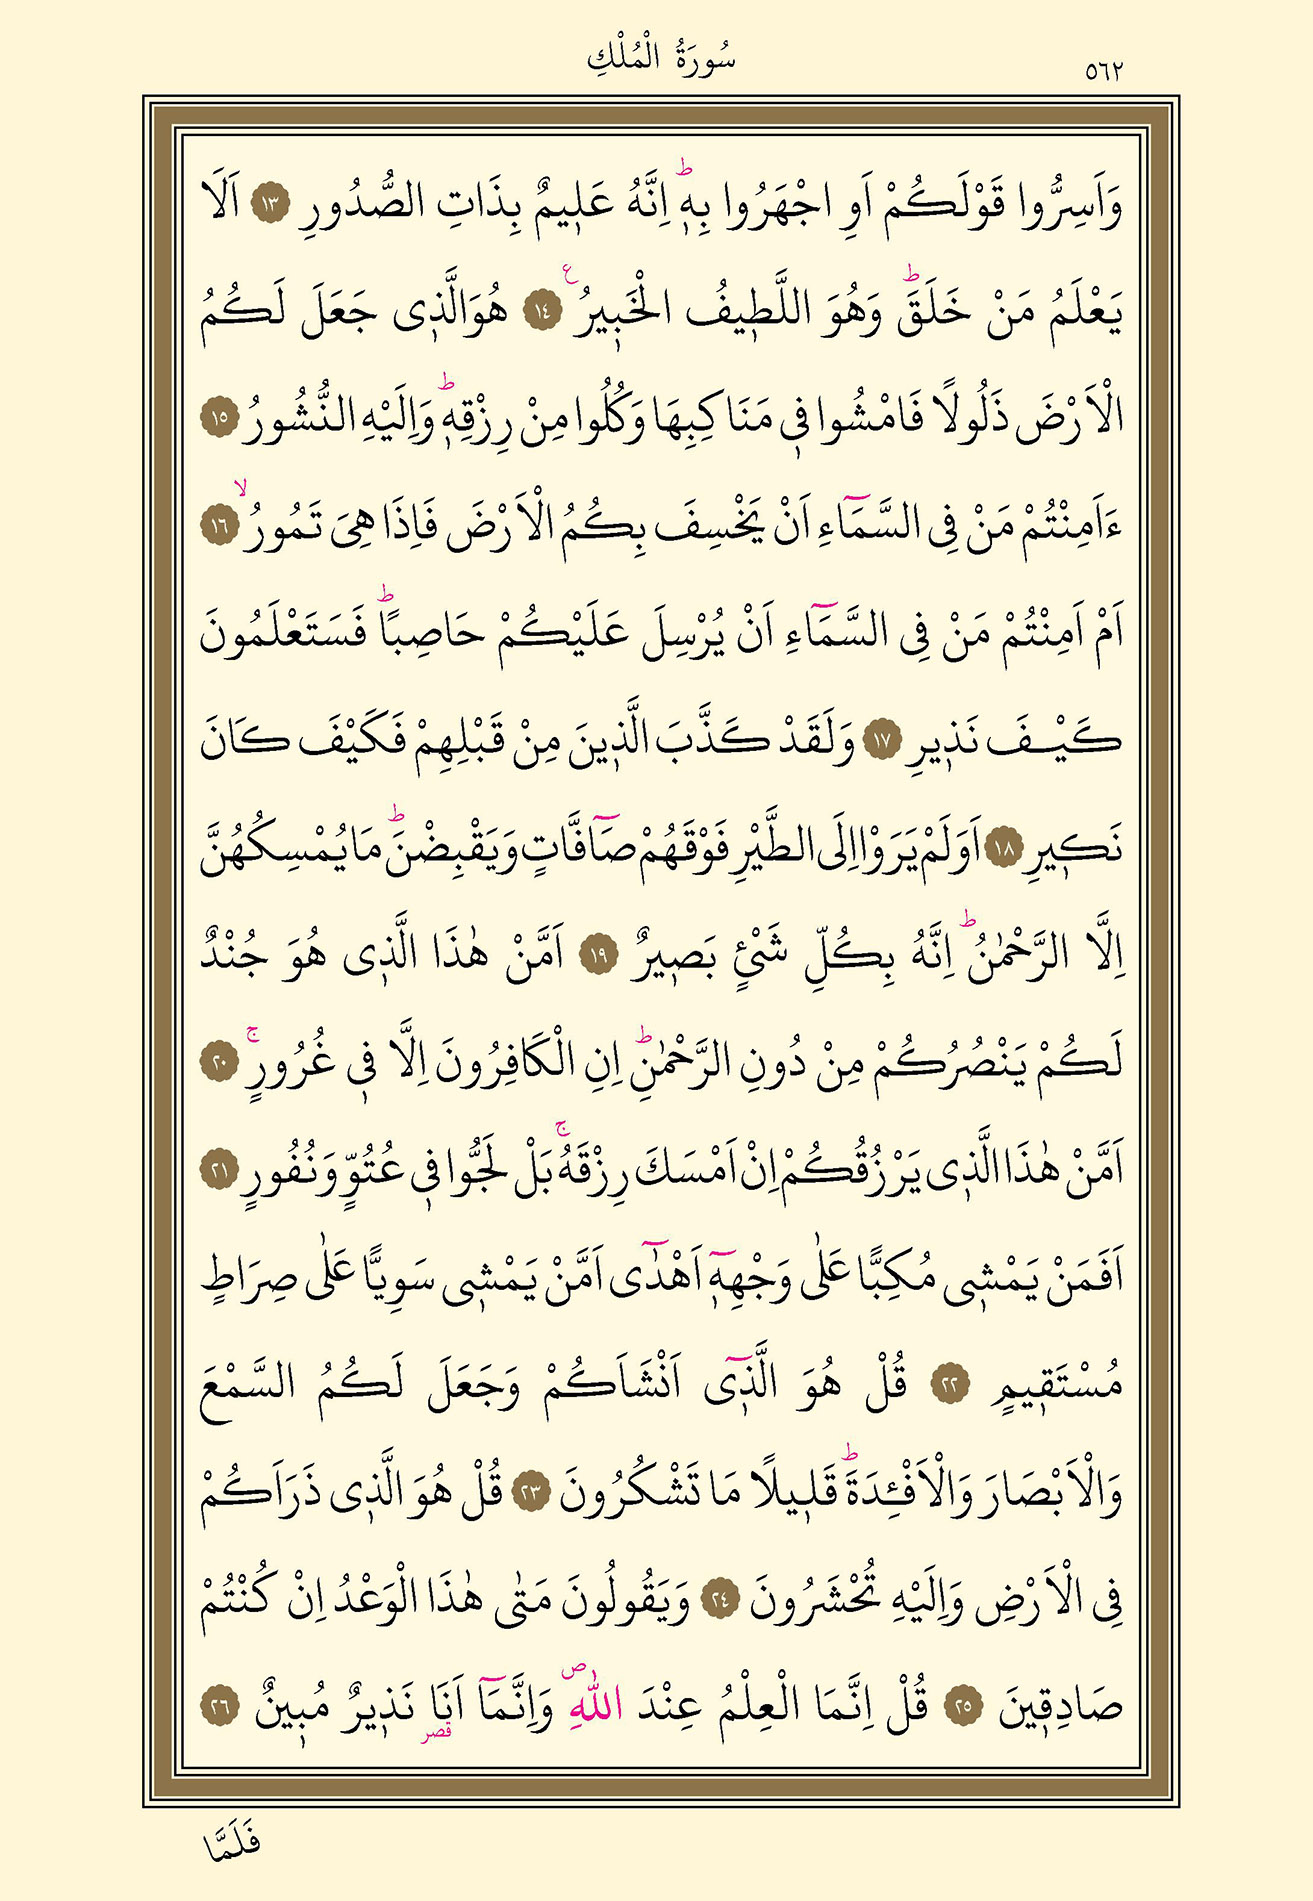 سُورَةُ الْمُلْكِ
٥٦٢
وَاَسِرُّوا قَوْلَكُمْ اَوِ اجْهَرُوا بِهٖؕ اِنَّهُ عَلٖيمٌ بِذَاتِ الصُّدُورِ ١٣ اَلَا
يَعْلَمُ مَنْ خَلَقَؕ وَهُوَ اللَّطٖيفُ الْخَبٖيرُ ع ١٤ هُوَ الَّذٖى جَعَلَ لَكُمُ
الْاَرْضَ ذَلُولًا فَامْشُوا فٖى مَنَاكِبِهَا وَكُلُوا مِنْ رِزْقِهٖؕ وَاِلَيْهِ النُّشُورُ ١٥
ءَاَمِنْتُمْ مَنْ فِى السَّمَٓاءِ اَنْ يَخْسِفَ بِكُمُ الْاَرْضَ فَاِذَا هِىَ تَمُورُۙ ١٦
اَمْ اَمِنْتُمْ مَنْ فِى السَّمَٓاءِ اَنْ يُرْسِلَ عَلَيْكُمْ حَاصِبًاؕ فَسَتَعْلَمُونَ
كَيْفَ نَذٖيرِ ١٧ وَلَقَدْ كَذَّبَ الَّذٖينَ مِنْ قَبْلِهِمْ فَكَيْفَ كَانَ
نَكٖيرِ ١٨ اَوَلَمْ يَرَوْا اِلَى الطَّيْرِ فَوْقَهُمْ صَٓافَّاتٍ وَيَقْبِضْنَؕ مَا يُمْسِكُهُنَّ
اِلَّا الرَّحْمٰنُؕ اِنَّهُ بِكُلِّ شَىْءٍ بَصٖيرٌ ١٩ اَمَّنْ هٰذَا الَّذٖى هُوَ جُنْدٌ
لَكُمْ يَنْصُرُكُمْ مِنْ دُونِ الرَّحْمٰنِؕ اِنِ الْكَافِرُونَ اِلَّا فٖى غُرُورٍۚ ٢٠
اَمَّنْ هٰذَا الَّذٖى يَرْزُقُكُمْ اِنْ اَمْسَكَ رِزْقَهُۚ بَلْ لَجُّوا فٖى عُتُوٍّ وَنُفُورٍ ٢١
اَفَمَنْ يَمْشٖى مُكِبًّا عَلٰى وَجْهِهٖٓ اَهْدٰٓى اَمَّنْ يَمْشٖى سَوِيًّا عَلٰى صِرَاطٍ
مُسْتَقٖيمٍ ٢٢ قُلْ هُوَ الَّذٖٓى اَنْشَاَكُمْ وَجَعَلَ لَكُمُ السَّمْعَ
وَالْاَبْصَارَ وَالْاَفْـِٔدَةَؕ قَلٖيلًا مَا تَشْكُرُونَ ٢٣ قُلْ هُوَ الَّذٖى ذَرَاَكُمْ
فِى الْاَرْضِ وَاِلَيْهِ تُحْشَرُونَ ٢٤ وَيَقُولُونَ مَتٰى هٰذَا الْوَعْدُ اِنْ كُنْتُمْ
صَادِقٖينَ ٢٥ قُلْ اِنَّمَا الْعِلْمُ عِنْدَ اللّٰهِ ص وَاِنَّمَٓا اَنَا نَذٖيرٌ مُبٖينٌ ٢٦
قصر
فَلَمَّا